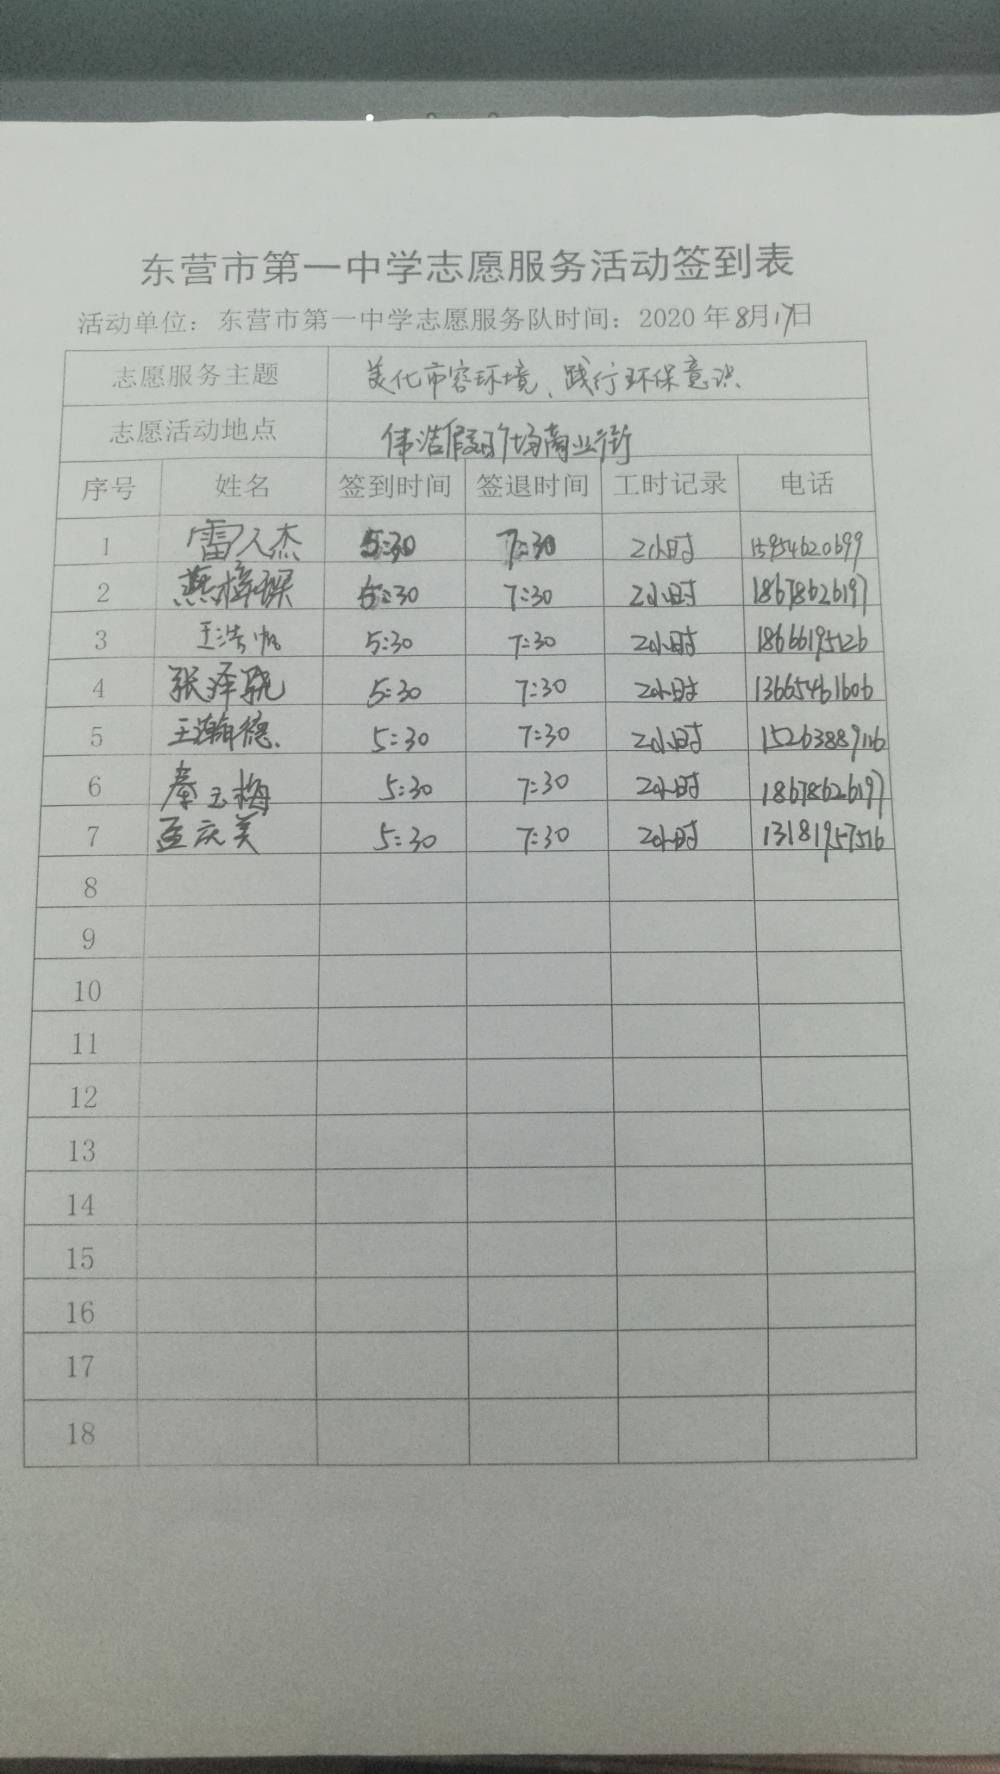 东营市第一中学志愿服务活动签到表
活动单位：东营市第一中学志愿服务队时间：2020年8月17日
志愿服务主题 美化市容环境、践行环保意识
志愿活动地点 伟浩假日广场商业街
序号 姓名 签到时间 签退时间 工时记录 电话
1 雷人杰 5:30 7:30 2小时 15954620699
2 燕梓琛 5:30 7:30 2小时 18678626197
3 王浩帆 5:30 7:30 2小时 18666195126
4 张泽骁 5:30 7:30 2小时 13665461606
5 王瀚德 5:30 7:30 2小时 15263889116
6 秦玉梅 5:30 7:30 2小时 18678626197
7 孟庆美 5:30 7:30 2小时 13181957516
8
9
10
11
12
13
14
15
16
17
18